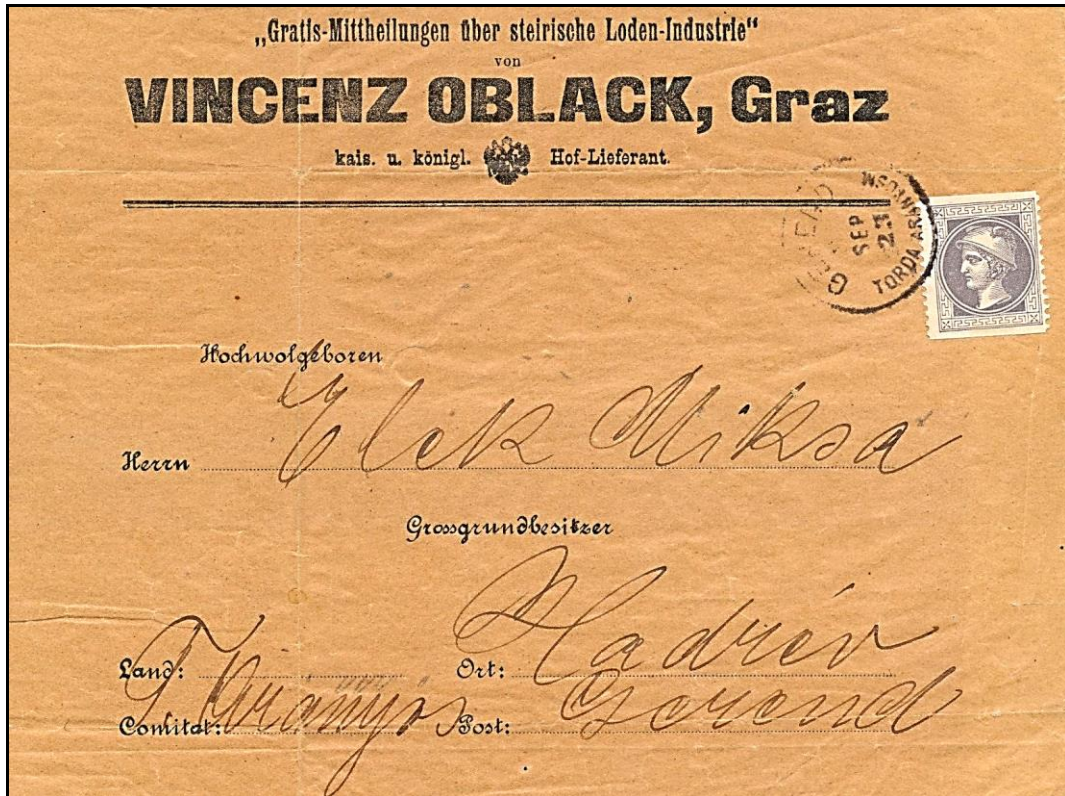 „Gratis-Mittheilungen über steirische Loden-Industrie“
von
VINCENZ OBLACK, Graz
kais. u. königl. Hof-Lieferant.
GEREND
SEP
23
TORDA ARANYOS M
Hochwolgeboren
Herrn Elek Miksa
Grossgrundbesitzer
Land: Ort: Hadrév
Comitat: T Aranyos Post: Gerend